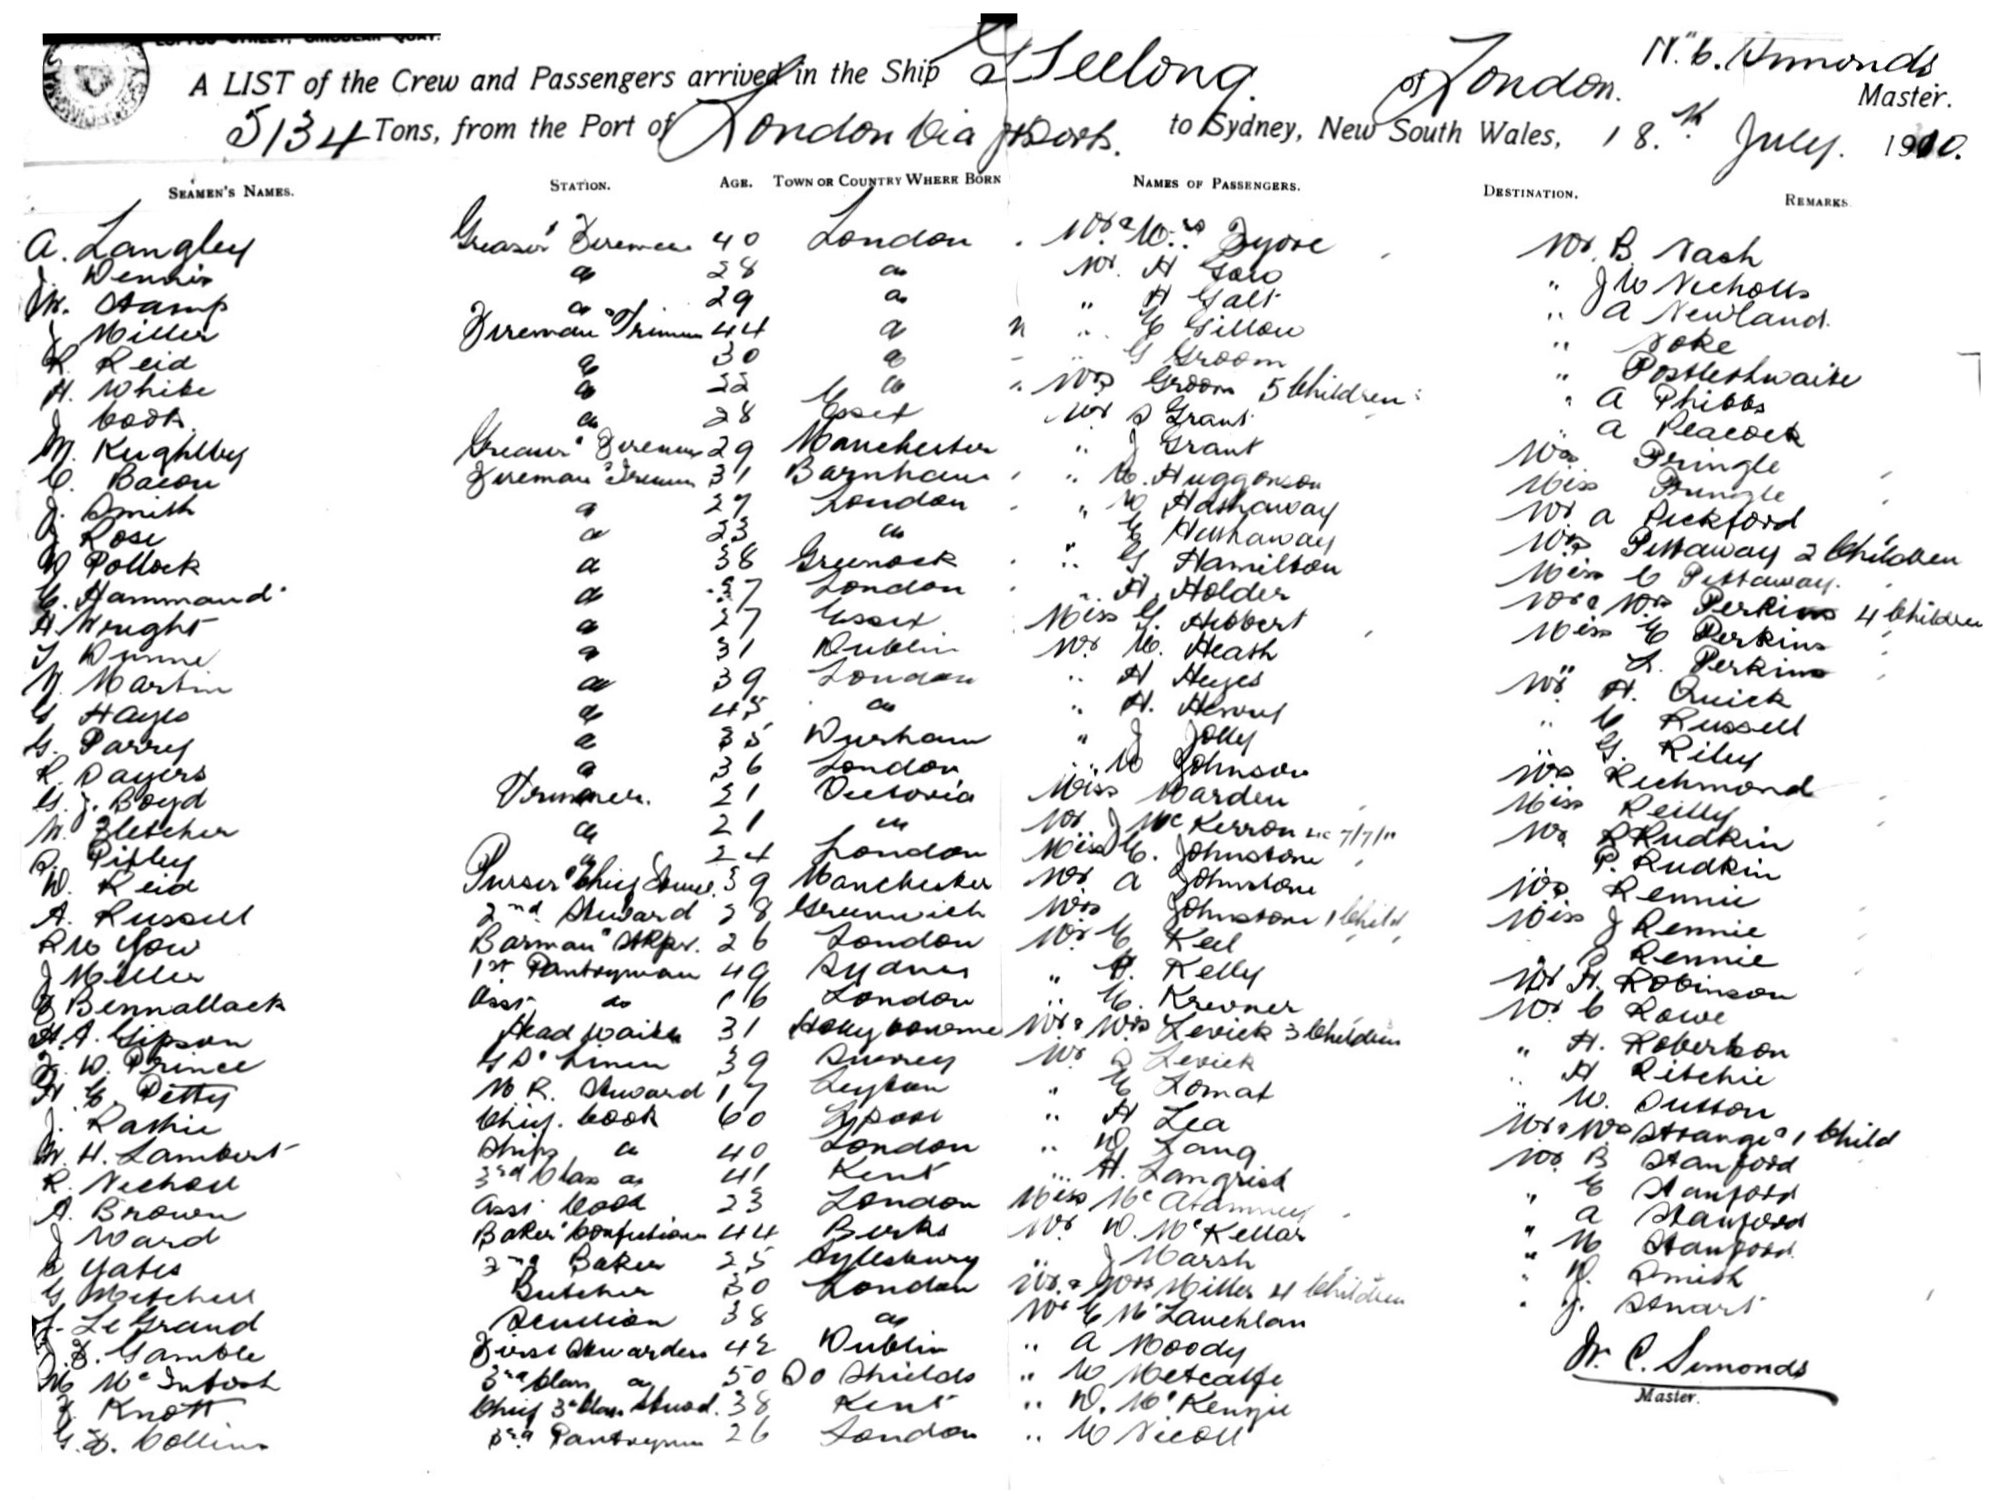 A LIST of the Crew and Passengers arrived in the Ship Geelong of London. W. C. Simonds Master.
5134 Tons, from the Port of London via Ports. to Sydney, New South Wales, 18.th July. 1910.
SEAMEN'S NAMES. STATION. AGE. TOWN OR COUNTRY WHERE BORN NAMES OF PASSENGERS. DESTINATION. REMARKS
A. Langley Greaser & Fireman 40 London Mr & Mrs Fyvie Mr. B. Nash
J. Dennis do 28 do Mr. H " J W Nicholls
W. Stamp do 29 do " H Galt " A Newland.
J Miller Fireman & Trimmer 44 do " E Gillow " Noke
R. Reid do 30 do " G Groom " Postlethwaite
H. White do 22 do Mrs Groom 5 Children " A Phibbs
J Cook. do 28 Essex Mr S Grant " A Peacock
M. Kughlby Greaser & Fireman 29 Manchester " J Grant Mrs Pringle
C. Bacon Fireman & Trimmer 31 Barnham " C. Huggonson Miss Pringle
J. Smith do 27 London " W Hathaway Mr A Pickford
J Rose do 23 do " E Hathaway Mrs Pettaway 2 Children
W Pollock do 38 Greenock " G. Hamilton Miss C Pettaway.
C. Hammond do 37 London " H. Holder Mr & Mrs Perkins 4 Children
H. Wright do 27 Essex Miss G. Hibbert Miss E Perkins
T Dunne do 31 Dublin Mr. C. Heath " L. Perkins
W. Martin do 39 London " H Heyes Mr. H. Quick
G Hayes do 45 do " H. Henry " C Russell
G. Parry do 35 Durham " J Jolly " G. Riley
R. Sayers do 36 London " W Johnson Mrs Richmond
G. J. Boyd Trimmer. 21 Victoria Miss Marden Miss Reilly
W. Fletcher do 21 do Mr J McKerron 7/7/10 Mr R Rudkin
S. Pitley do 24 London Miss C. Johnstone P. Rudkin
W. Reid Purser & Chief Stewd. 39 Manchester Mr A Johnstone Mrs Rennie
A. Russell 2nd Steward 28 Greenwich Mrs Johnstone 1 Child Miss J Rennie
R W Yow Barman & Stkpr. 26 London Mr. E Keel " Rennie
J Miller 1st Pantryman 49 Sydney " P. Kelly Mr H. Robinson
J Bennallack Asst do 16 London " C. Krevner Mr. C Rowe
H. A. Gipson Head Waiter 31 Hollybourne Mr & Mrs Levick 3 Children " H. Robertson
F. W. Prince G S & Linen 39 Surrey Mr Levick " H Ritchie
H. C. Petty M R. Steward 17 Leyton " E Lomat " W. Sutton
J. Rathie Chief. Cook 60 Lpool " H Lea Mr & Mrs Strange & 1 Child
W. H. Lambert Ships do 40 London " W Lang Mr. B Stanford
R. Nicholl 3rd Class do 41 Kent " H. Langrish " E Stanford
A. Brown Asst Cook 23 London Miss McAtamney " A Stanford
J Ward Baker & Confectioner 44 Berks Mr W. McKellar " M Stanford
Yates 2nd Baker 25 Aylesbury " J Marsh " W. Smith
G Mitchell Butcher 30 London Mr & Mrs Miller 4 Children " J. Stuart
L. LeGrand Scullion 38 do Mr E McLauchlan
J. F. Gamble First Stewardess 42 Dublin " A Moody W. C. Simonds
M McIntosh 3rd Class do 50 So Shields " W Metcalfe Master.
F Knott Chief 3rd Class Steward. 38 Kent " W. McKenzie
G. F. Collins 3rd Pantryman 26 London " W Nicoll